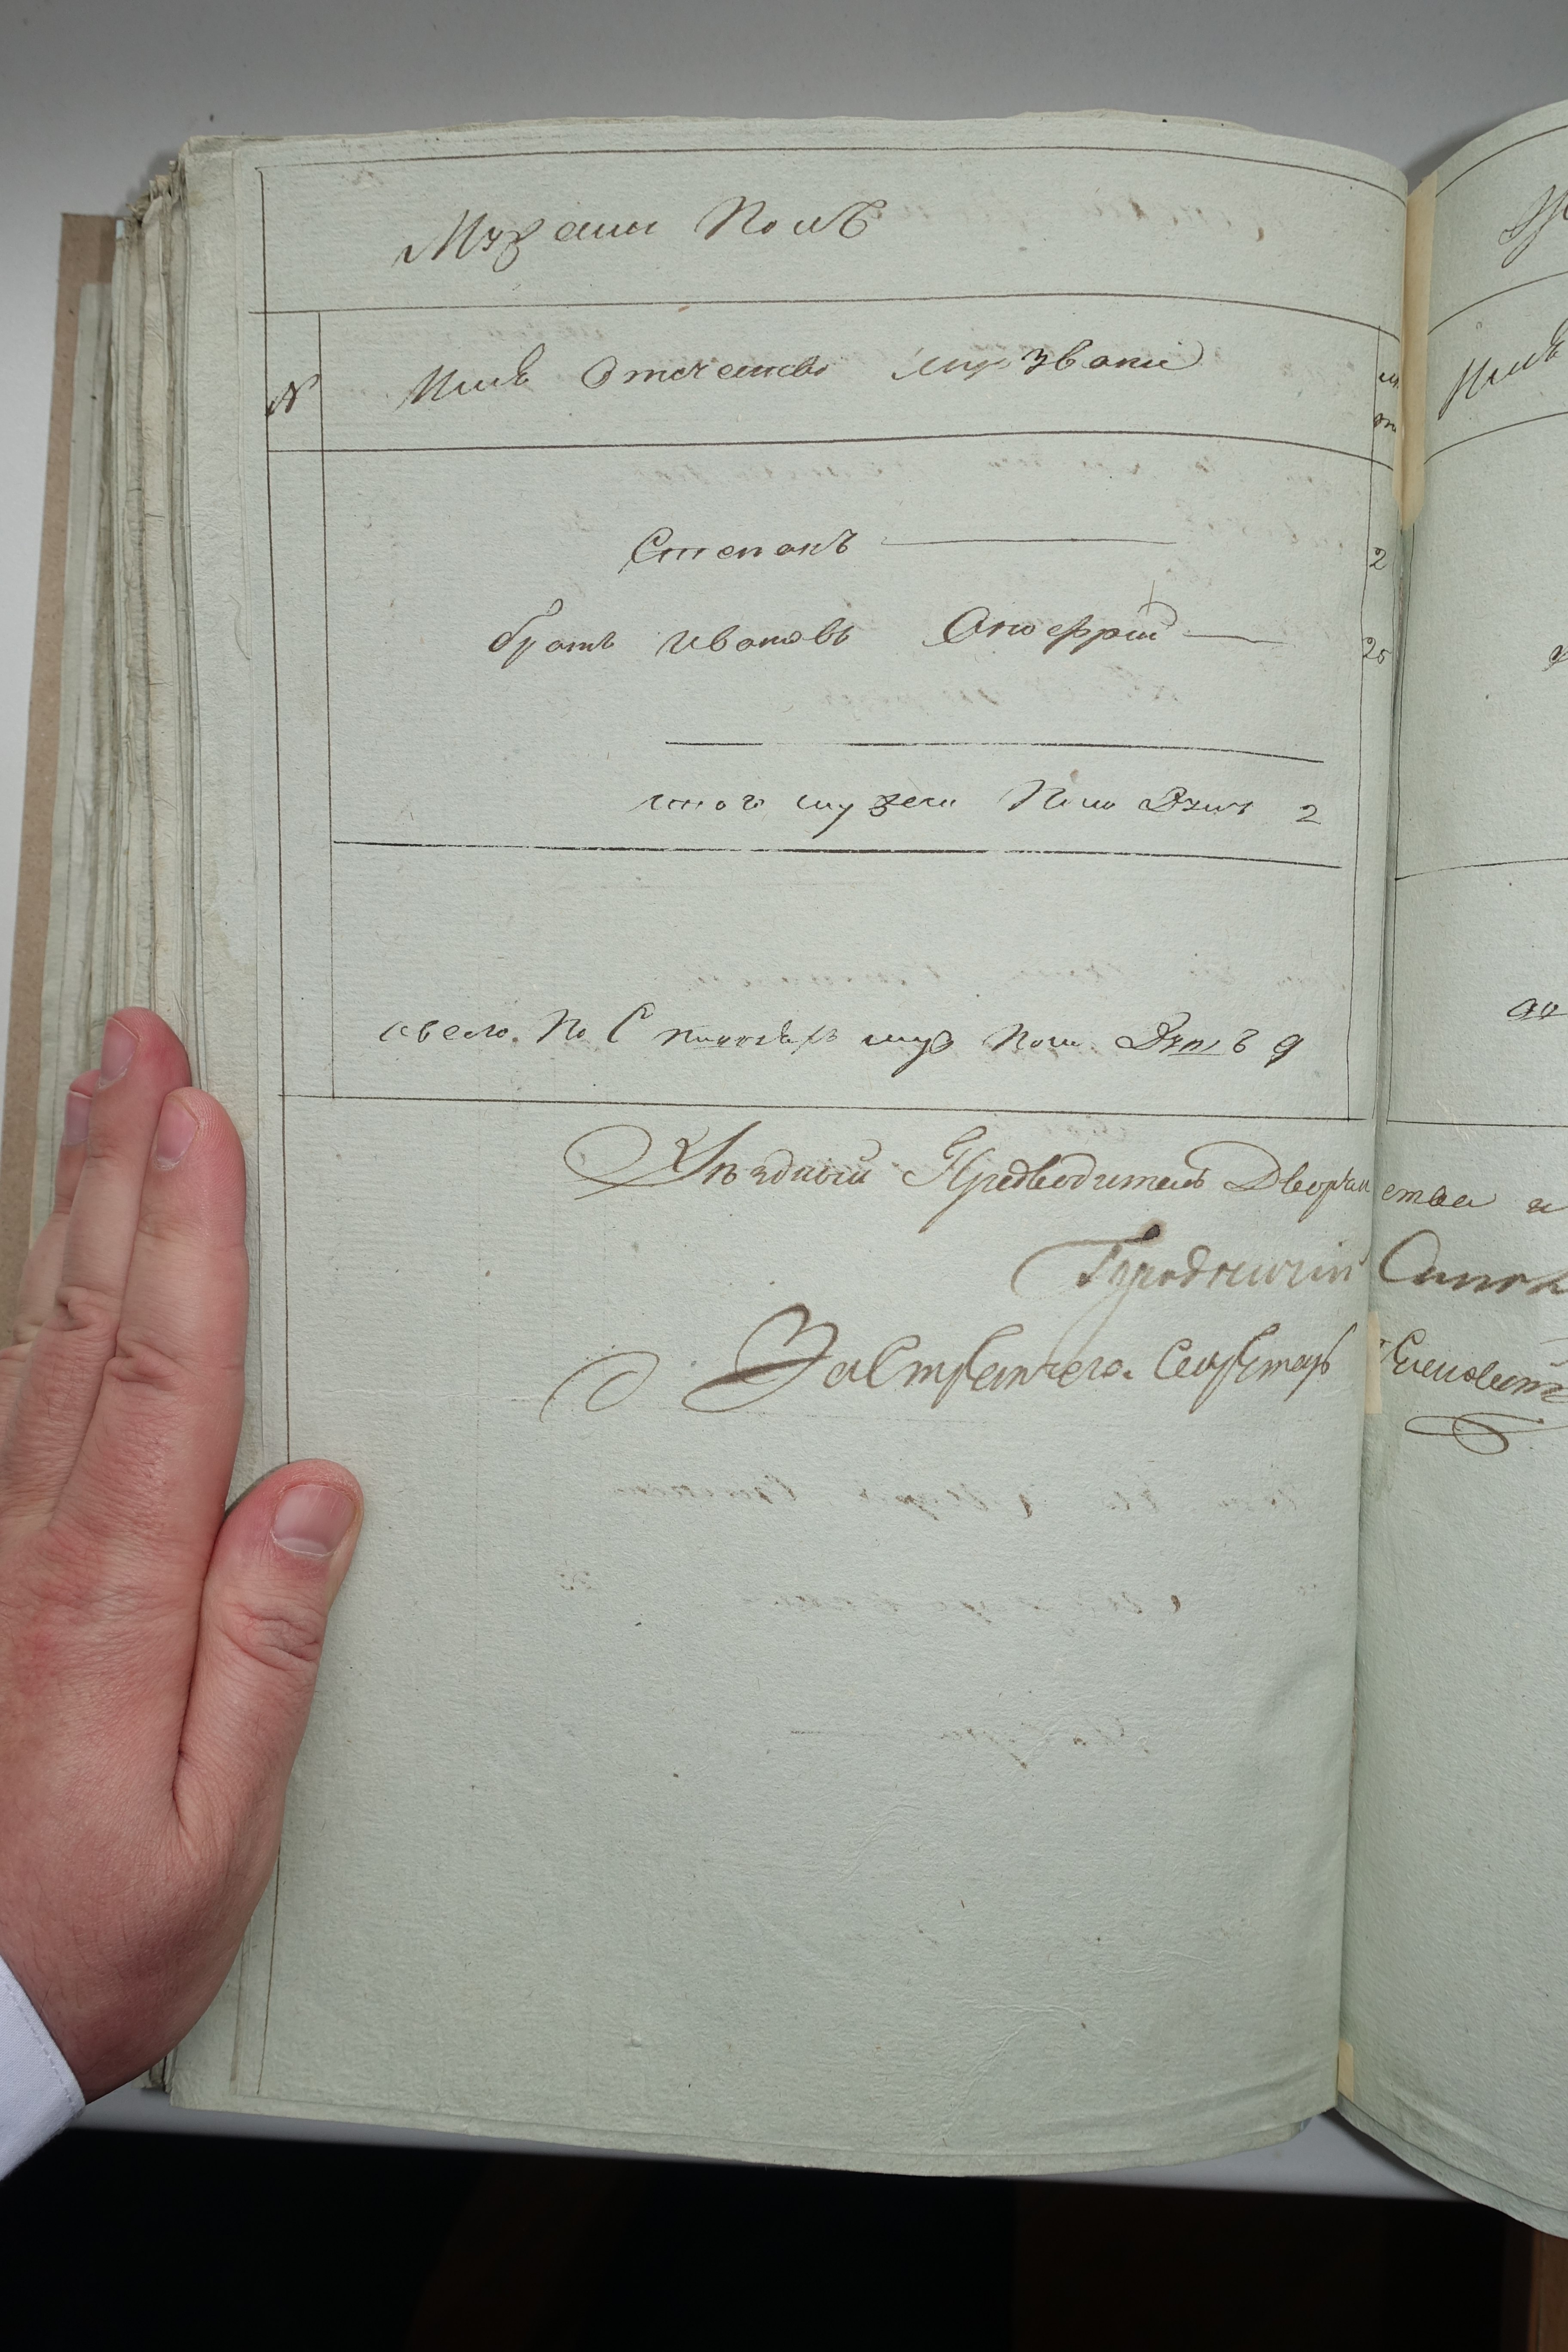 Мужеска Полъ
№ Имя Отечество и прозвание
Степанъ 2
братъ Ивановъ Оноефрий 25
итого мужеска Пола Душъ 2
а всего по С муж Пола Душъ 9
Уѣздный Предводитель Дворянства и
Городничий
За Стряпчего Секретарь